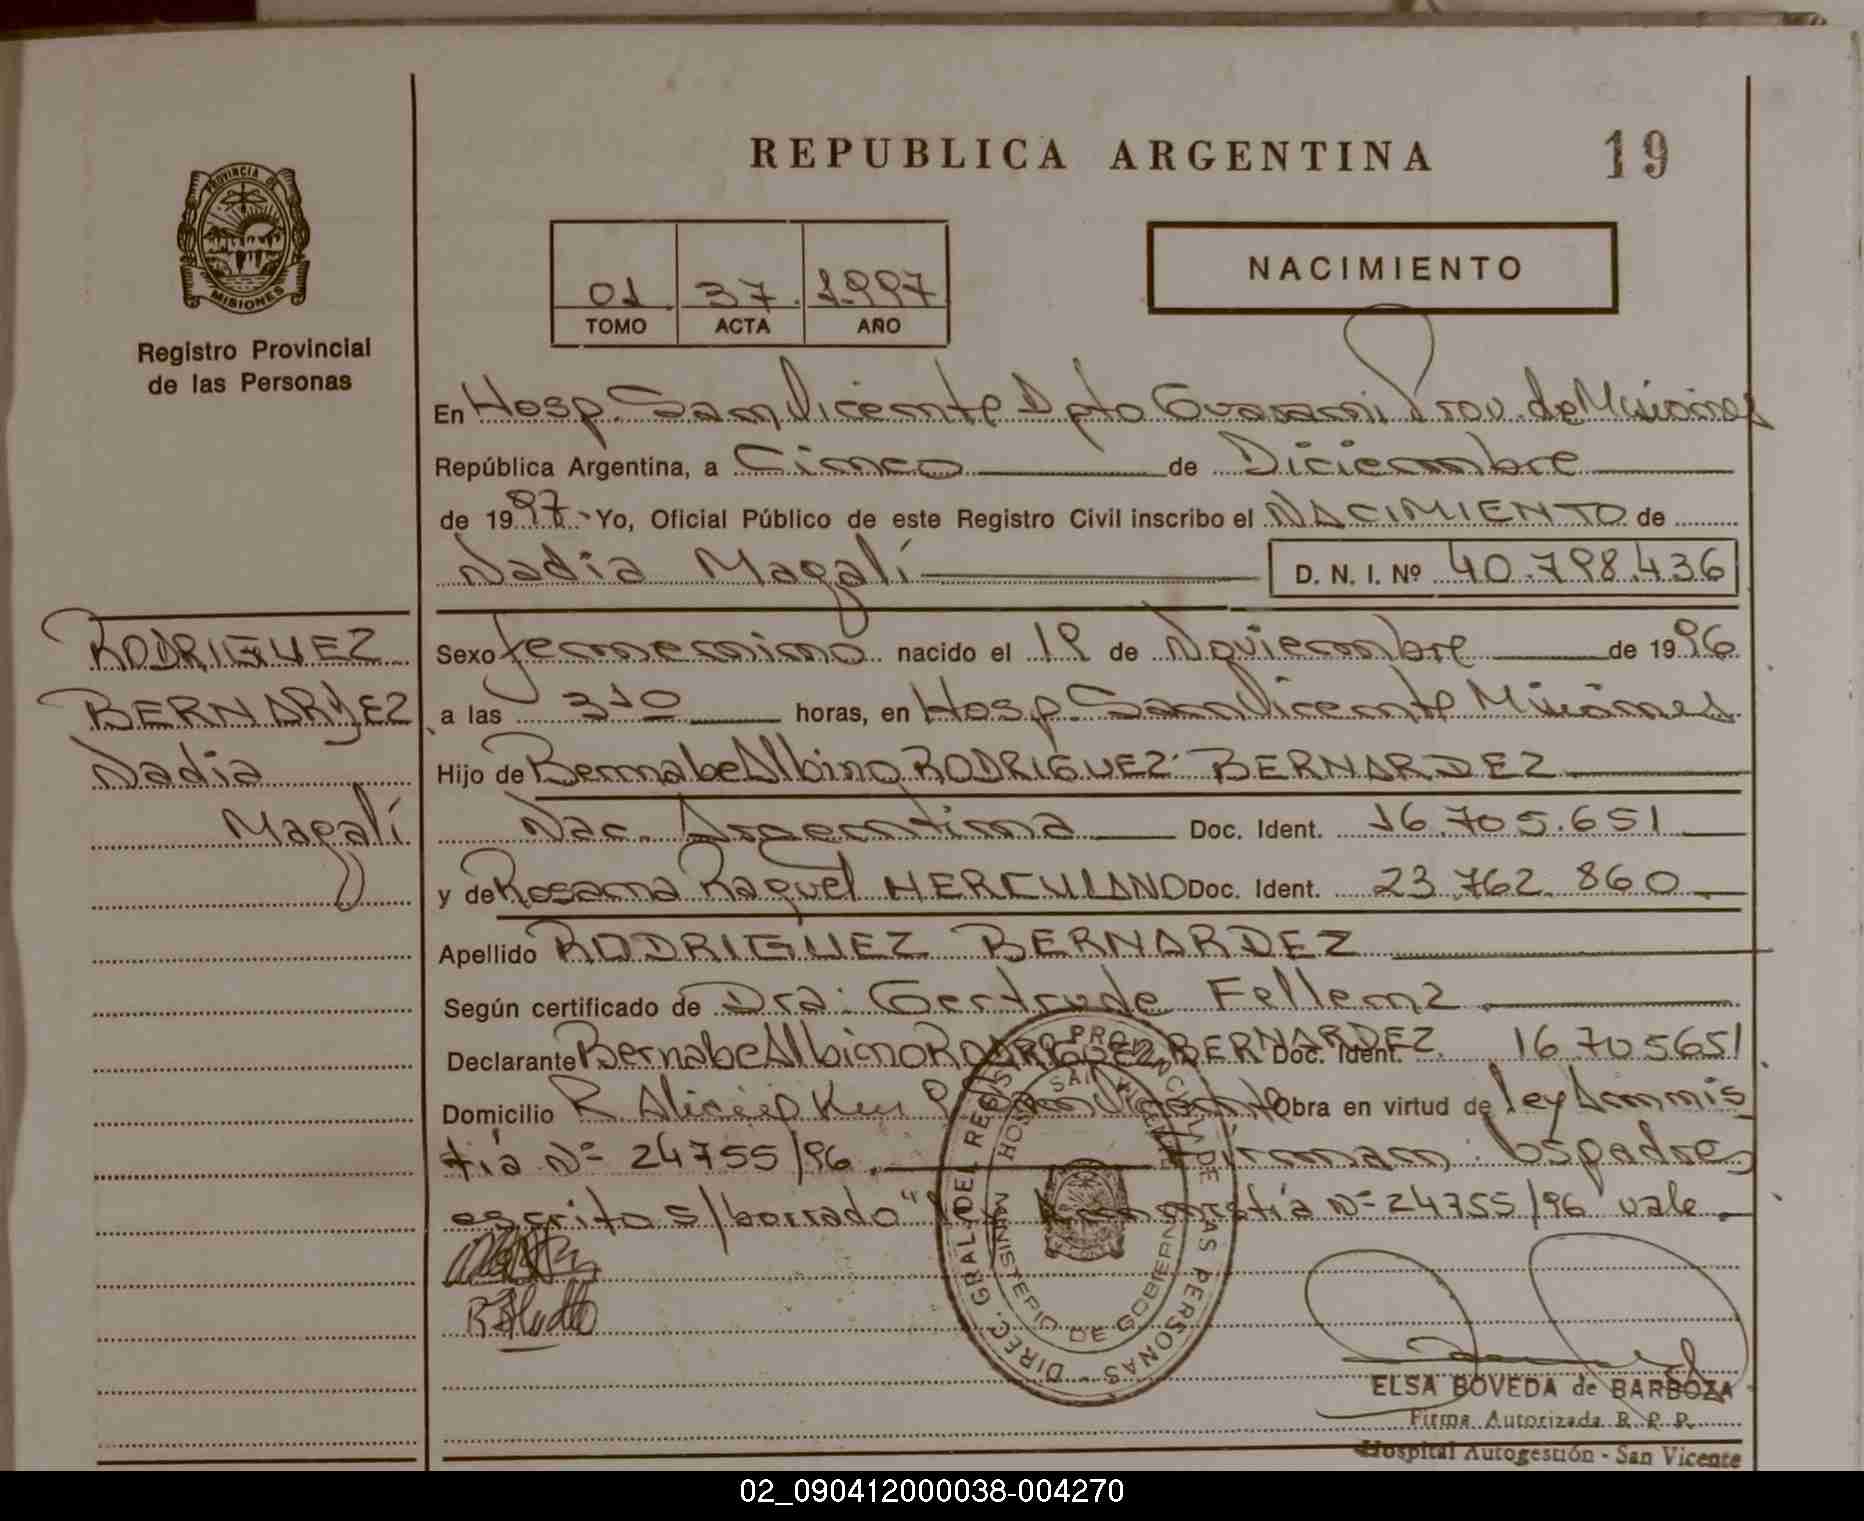 REPUBLICA ARGENTINA
19
PROVINCIA DE
MISIONES
Registro Provincial
de las Personas
01 37 1997
TOMO ACTA AÑO
NACIMIENTO
En Hosp. San Vicente Dpto Guarani Prov. de Misiones
República Argentina, a Cinco de Diciembre
de 1997 Yo, Oficial Público de este Registro Civil inscribo el NACIMIENTO de
Nadia Magalí D. N. I. Nº 40.798.436
RODRIGUEZ
BERNARDEZ
Nadia
Magalí
Sexo femenino nacido el 19 de Noviembre de 1996
a las 310 horas, en Hosp. San Vicente Misiones
Hijo de Bernabe Albino RODRIGUEZ BERNARDEZ
Nac. Argentina Doc. Ident. 16.705.651
y de Rosana Raquel HERCULANO Doc. Ident. 23.762.860
Apellido RODRIGUEZ BERNARDEZ
Según certificado de Dra: Gertrude Fellenz
Declarante Bernabe Albino RODRIGUEZ BERNARDEZ Doc. Ident. 16.705651
Domicilio San Vicente Obra en virtud de ley Amnis
tía Nº 24755/96. Firman los padres
escrito s/borrado "ley Amnistía Nº 24755/96 vale.
DIREC. GRAL. DEL REGISTRO PROVINCIAL DE LAS PERSONAS
HOSP. SAN VICENTE
MINISTERIO DE GOBIERNO
ELSA BOVEDA de BARBOZA
Firma Autorizada R. P. P.
Hospital Autogestión - San Vicente
02_090412000038-004270